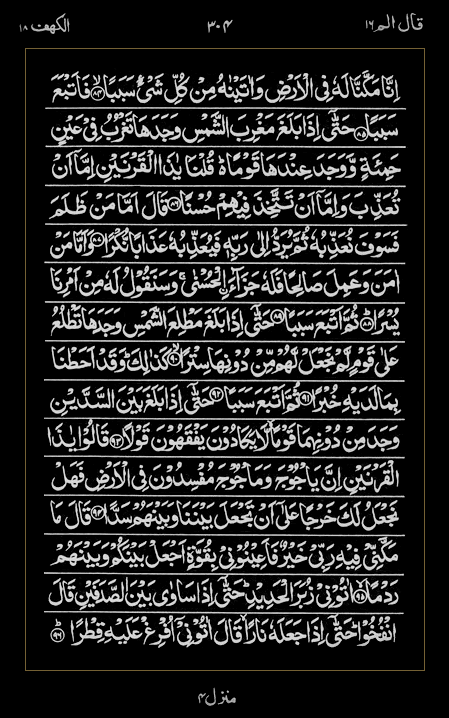 قال الم ۱۶ ۳۰۴ الكهف ۱۸
اِنَّا مَكَّنَّا لَهٗ فِی الْاَرْضِ وَاٰتَيْنٰهُ مِنْ كُلِّ شَیْءٍ سَبَبًا ﴿۸۴﴾ فَاَتْبَعَ
سَبَبًا ﴿۸۵﴾ حَتّٰۤی اِذَا بَلَغَ مَغْرِبَ الشَّمْسِ وَجَدَهَا تَغْرُبُ فِیْ عَيْنٍ
حَمِئَةٍ وَّوَجَدَ عِنْدَهَا قَوْمًا ۬ؕ قُلْنَا يٰذَا الْقَرْنَيْنِ اِمَّاۤ اَنْ
تُعَذِّبَ وَاِمَّاۤ اَنْ تَتَّخِذَ فِيْهِمْ حُسْنًا ﴿۸۶﴾ قَالَ اَمَّا مَنْ ظَلَمَ
فَسَوْفَ نُعَذِّبُهٗ ثُمَّ يُرَدُّ اِلٰی رَبِّهٖ فَيُعَذِّبُهٗ عَذَابًا نُّكْرًا ﴿۸۷﴾ وَاَمَّا مَنْ
اٰمَنَ وَعَمِلَ صَالِحًا فَلَهٗ جَزَآءَ ۨالْحُسْنٰی ۚ وَسَنَقُوْلُ لَهٗ مِنْ اَمْرِنَا
يُسْرًا ﴿۸۸﴾ ثُمَّ اَتْبَعَ سَبَبًا ﴿۸۹﴾ حَتّٰۤی اِذَا بَلَغَ مَطْلِعَ الشَّمْسِ وَجَدَهَا تَطْلُعُ
عَلٰی قَوْمٍ لَّمْ نَجْعَلْ لَّهُمْ مِّنْ دُوْنِهَا سِتْرًا ﴿۹۰﴾ كَذٰلِكَ ؕ وَقَدْ اَحَطْنَا
بِمَا لَدَيْهِ خُبْرًا ﴿۹۱﴾ ثُمَّ اَتْبَعَ سَبَبًا ﴿۹۲﴾ حَتّٰۤی اِذَا بَلَغَ بَيْنَ السَّدَّيْنِ
وَجَدَ مِنْ دُوْنِهِمَا قَوْمًا ۙ لَّا يَكَادُوْنَ يَفْقَهُوْنَ قَوْلًا ﴿۹۳﴾ قَالُوْا يٰذَا
الْقَرْنَيْنِ اِنَّ يَاْجُوْجَ وَمَاْجُوْجَ مُفْسِدُوْنَ فِی الْاَرْضِ فَهَلْ
نَجْعَلُ لَكَ خَرْجًا عَلٰۤی اَنْ تَجْعَلَ بَيْنَنَا وَبَيْنَهُمْ سَدًّا ﴿۹۴﴾ قَالَ مَا
مَكَّنِّیْ فِيْهِ رَبِّیْ خَيْرٌ فَاَعِيْنُوْنِیْ بِقُوَّةٍ اَجْعَلْ بَيْنَكُمْ وَبَيْنَهُمْ
رَدْمًا ﴿۹۵﴾ اٰتُوْنِیْ زُبَرَ الْحَدِيْدِ ؕ حَتّٰۤی اِذَا سَاوٰی بَيْنَ الصَّدَفَيْنِ قَالَ
انْفُخُوْا ؕ حَتّٰۤی اِذَا جَعَلَهٗ نَارًا ۙ قَالَ اٰتُوْنِیْۤ اُفْرِغْ عَلَيْهِ قِطْرًا ﴿۹۶﴾
منزل ۴